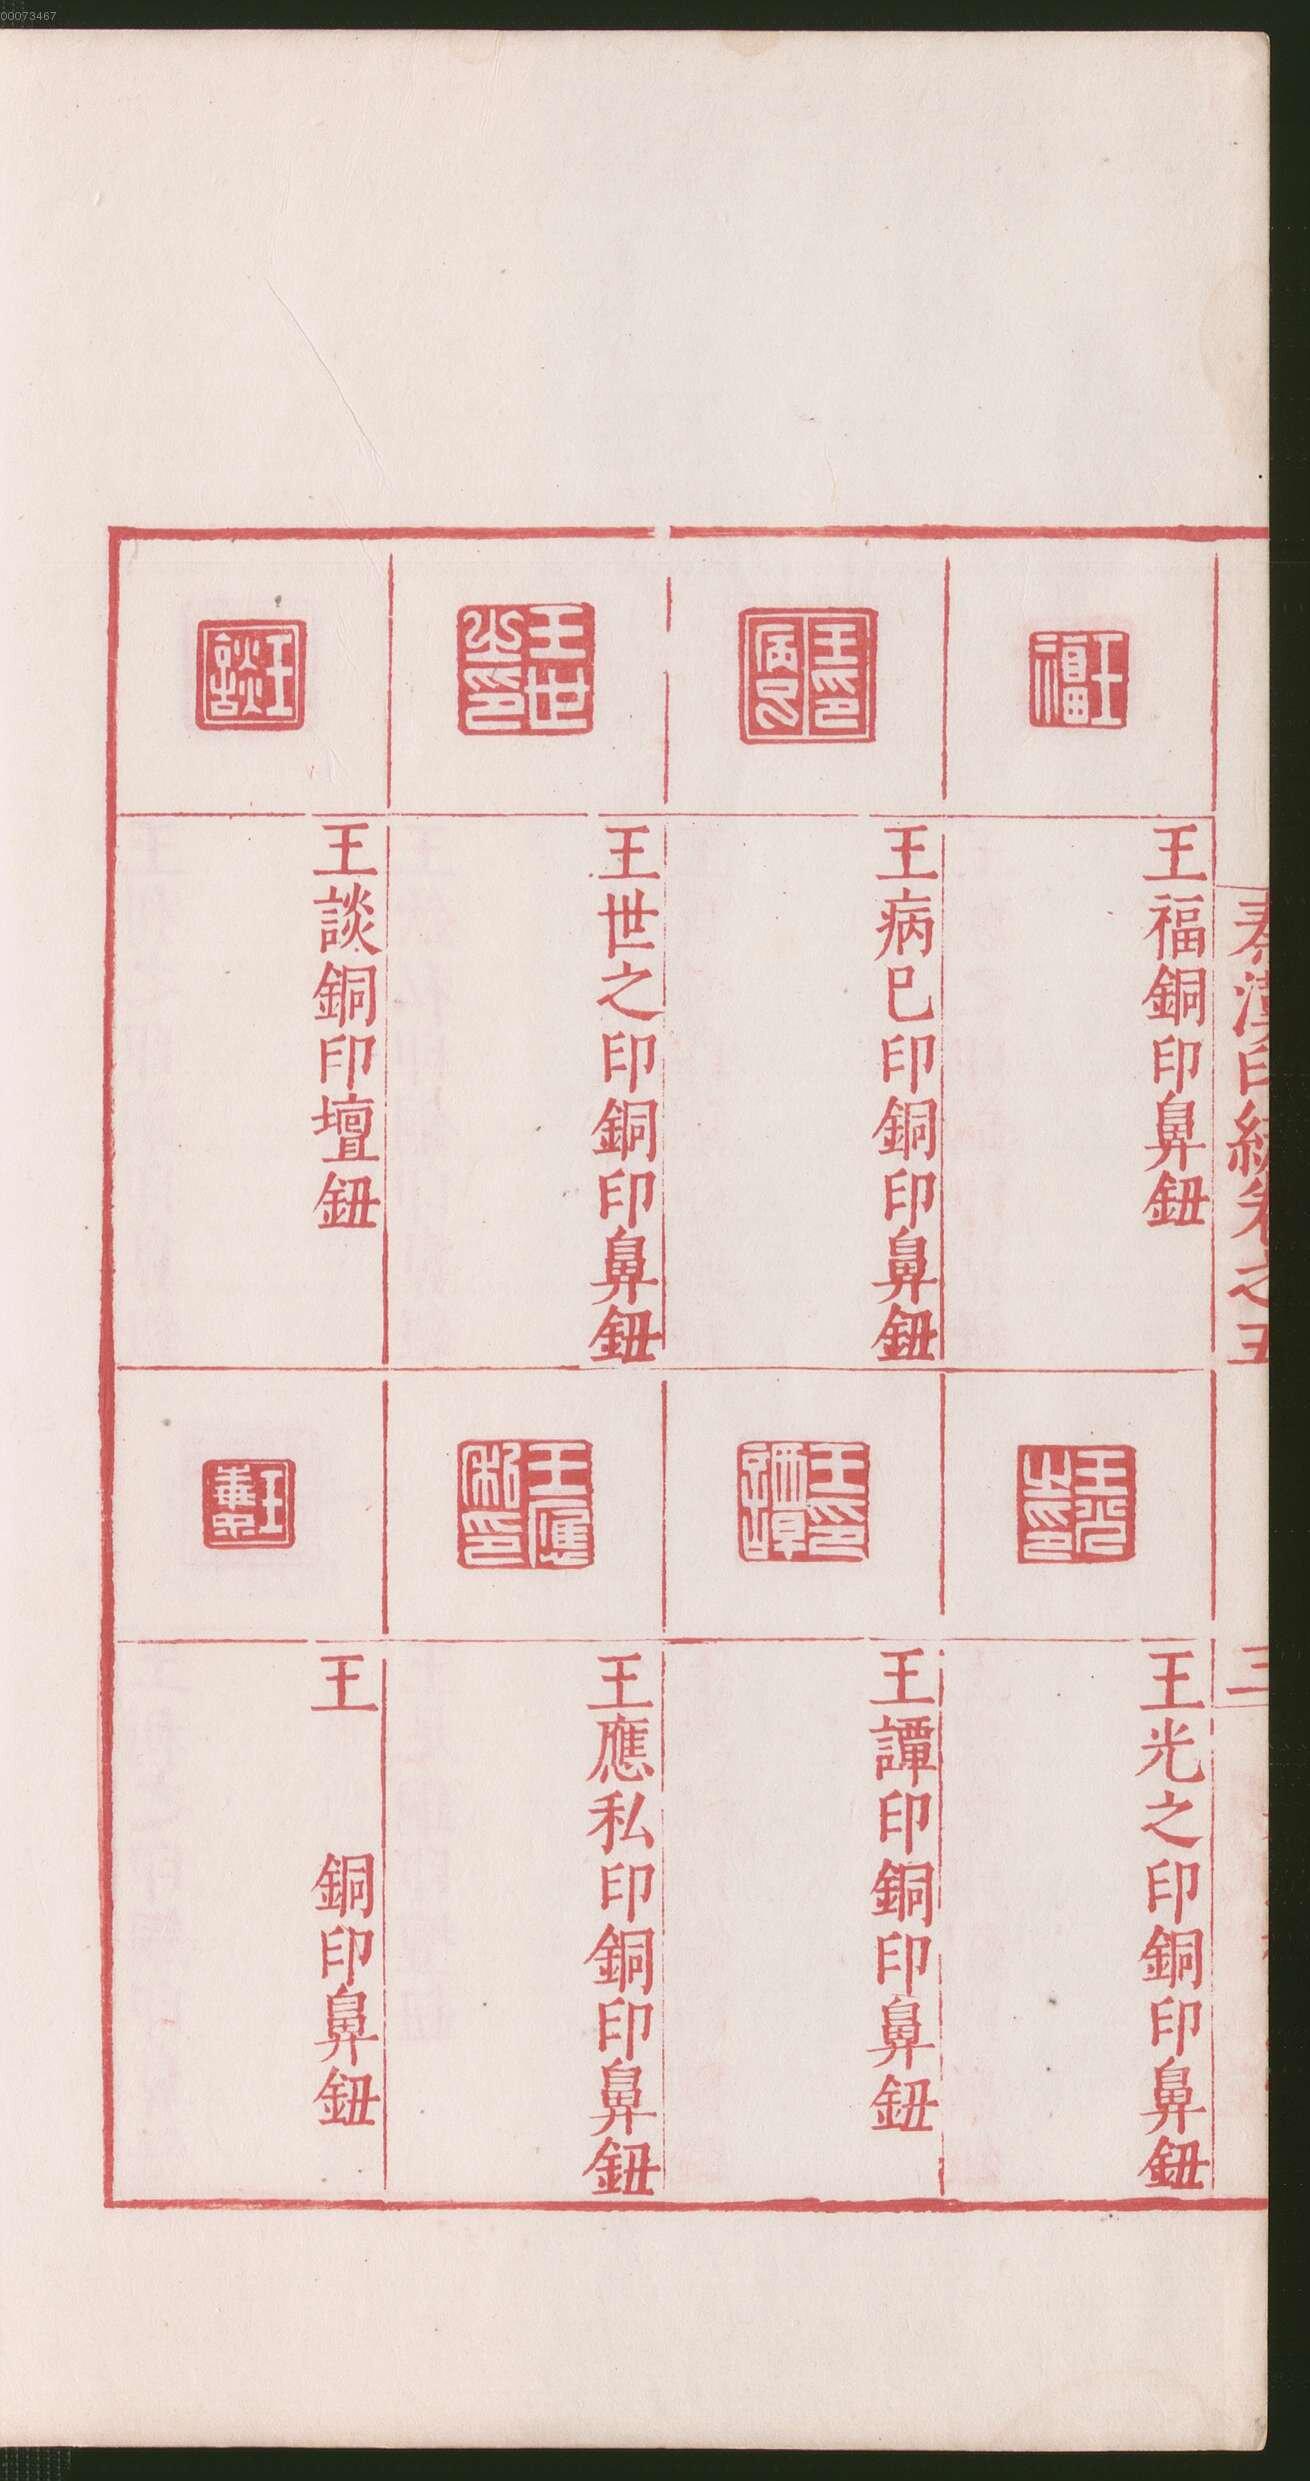 00073467
秦漢印統卷之五
三
王福
王福銅印鼻鈕
王印病已
王病巳印銅印鼻鈕
王世之印
王世之印銅印鼻鈕
王談
王談銅印壇鈕
王光之印
王光之印銅印鼻鈕
王印譚
王譚印銅印鼻鈕
王應私印
王應私印銅印鼻鈕
王
王　銅印鼻鈕